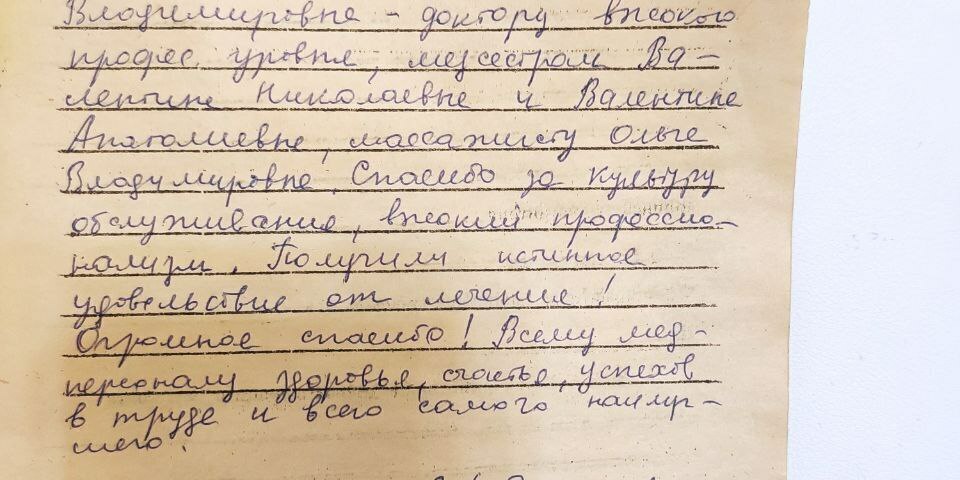 Владимировне - доктору высокого
профес. уровня, медсестрам Ва-
лентине Николаевне и Валентине
Анатолиевне, массажисту Ольге
Владимировне. Спасибо за культуру
обслуживания, высокий профессио-
нализм. Получили истинное
удовольствие от лечения!
Огромное спасибо! Всему мед-
персоналу здоровья, счастья, успехов
в труде и всего самого наилуч-
шего.